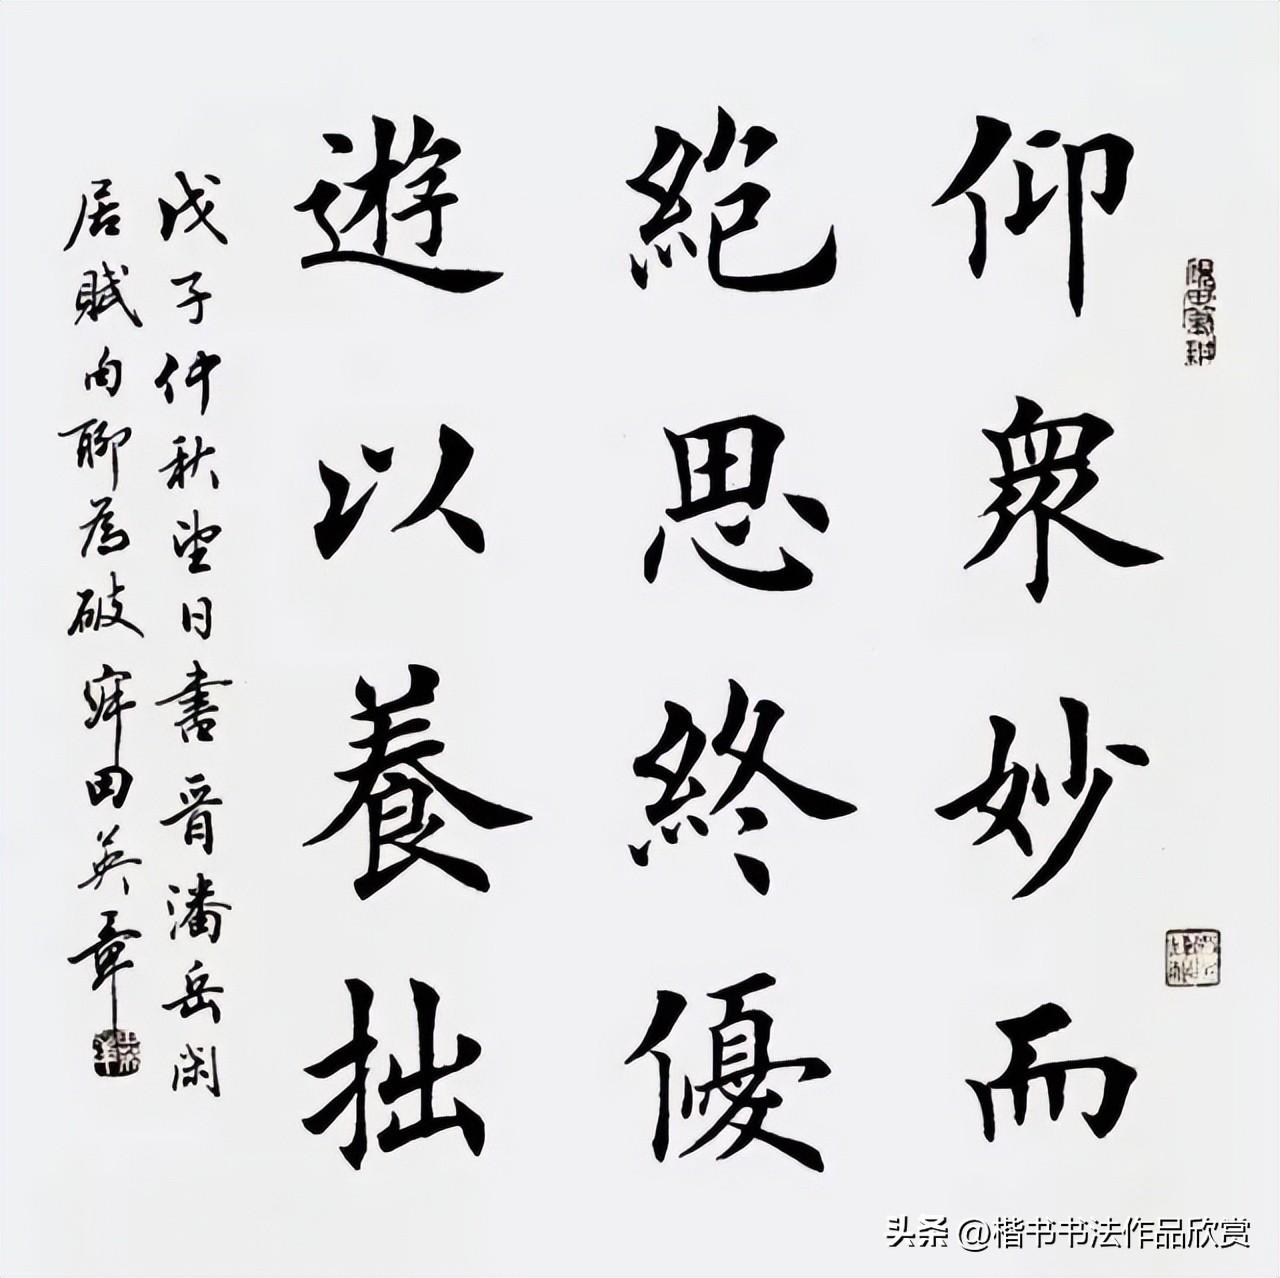 仰衆妙而
絶思終優
遊以養拙
戊子仲秋望日書晋潘岳閑
居賦句聊為破寂田英章
头条 @楷书书法作品欣赏